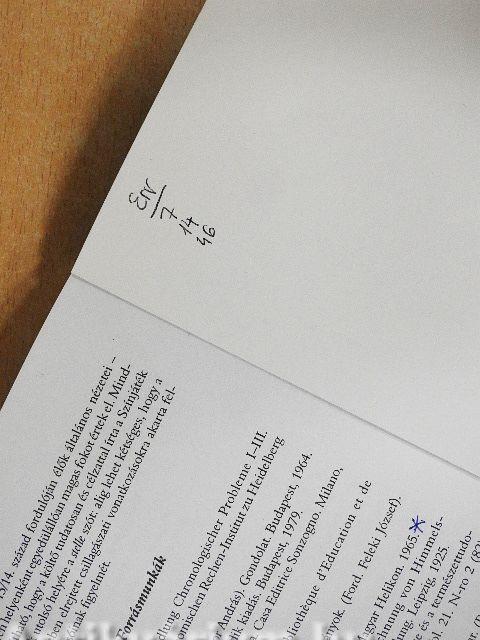 ÉN
7
14
46
3/14. század fordulóján élők általános nézetei –
helyenként egyedülállóan magas fokot értek el. Mind-
ató, hogy a költő tudatosan és célzattal írta a Színjáték
utolsó helyére a stelle szót: alig lehet kétséges, hogy a
en elrejtett csillagászati vonatkozásokra akarta fel-
nak figyelmét.
Forrásmunkák
dlung. Chronologischer Probleme I–III.
mischen Rechen-Institut zu Heidelberg
András). Gondolat Budapest, 1964.
ik kiadás. Budapest, 1979.
Casa Editrice Sonzogno. Milano,
liothèque d'Education et de
yok. (Ford. Feleki József).
gyar Helikon. 1965. *
chnung von Himmels-
ng. Leipzig, 1925.
e és a természettudo-
21. N-ro 2 (82)